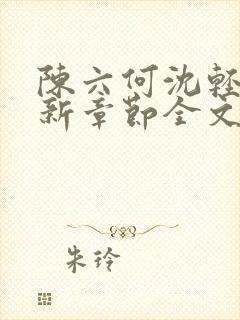 陳六何沈輕
新章節全文
朱玲